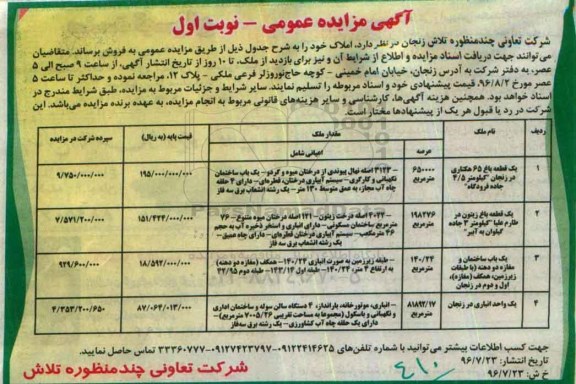 آگهی مزایده عمومی – نوبت اول
شرکت تعاونی چندمنظوره تلاش زنجان در نظر دارد، املاک خود را به شرح جدول ذیل از طریق مزایده عمومی به فروش برساند. متقاضیان
می‌توانند جهت دریافت اسناد مزایده و اطلاع از شرایط آن و نیز برای بازدید از ملک، تا ۱۰ روز از تاریخ انتشار آگهی، از ساعت ۹ صبح الی ۵
عصر، به دفتر شرکت به آدرس زنجان، خیابان امام خمینی – کوچه حاج‌نوروزلر فرعی ملکی – پلاک ۱۲، مراجعه نموده و حداکثر تا ساعت ۵
عصر مورخ ۹۶/۸/۲، قیمت پیشنهادی خود و اسناد مربوطه را تسلیم نمایند. سایر شرایط و جزئیات مربوط به مزایده، طبق شرایط مندرج در
اسناد خواهد بود. همچنین هزینه آگهی‌ها، کارشناسی و سایر هزینه‌های قانونی مربوط به انجام مزایده، به عهده برنده مزایده می‌باشد. این
شرکت در رد یا قبول هر یک از پیشنهادها مختار است.
ردیف نام ملک مقدار ملک قیمت پایه (به ریال) سپرده شرکت در مزایده
عرصه اعیانی شامل
۱ یک قطعه باغ ۶۵ هکتاری در زنجان "کیلومتر ۴/۵ جاده فرودگاه" ۶۵۰۰۰۰ مترمربع
– ۳۱۲۳ اصله نهال پیوندی از درختان میوه و گردو – یک باب ساختمان
نگهبانی و کارگری – سیستم آبیاری درختان، قطره‌ای – دارای ۴ حلقه
چاه آب مجاز، به عمق متوسط ۱۳۰ متر – یک رشته انشعاب برق سه فاز
۱۹۵/۰۰۰/۰۰۰/۰۰۰ ۹/۷۵۰/۰۰۰/۰۰۰
۲ یک قطعه باغ زیتون در طارم علیا "کیلومتر ۳ جاده گیلوان به آببر" ۱۹۸۲۷۶ مترمربع
– ۴۰۲۲ اصله درخت زیتون – ۱۲۱ اصله درختان میوه متنوع – ۷۶
مترمربع ساختمان مسکونی – دارای انباری و استخر ذخیره آب به حجم
۴۶ مترمکعب – سیستم آبیاری درختان قطره‌ای – دارای چاه عمیق –
یک رشته انشعاب برق سه فاز
۱۵۱/۴۲۴/۰۰۰/۰۰۰ ۷/۵۷۱/۲۰۰/۰۰۰
۳ یک باب ساختمان و مغازه دو دهنه (با طبقات زیرزمین، همکف (مغازه)، اول و دوم در زنجان ۱۴۰/۲۴ مترمربع
– طبقه زیرزمین به صورت انباری ۱۴۰/۲۴ – همکف (مغازه دو دهنه)
به ارتفاع ۴ متر، ۱۴۰/۲۴ – طبقه اول ۱۴۳/۱۴ – طبقه دوم ۴۲/۹۵
۱۸/۵۹۲/۰۰۰/۰۰۰ ۹۲۹/۶۰۰/۰۰۰
۴ یک واحد انباری در زنجان ۸۱۸۹۲/۱۷ مترمربع
– انباری، موتورخانه، بارانداز، ۴ دستگاه سالن سوله و ساختمان اداری
و نگهبانی و باسکول (مجموعا به مساحت تقریبی ۷۰۰۵/۲۶ مترمربع) –
دارای یک حلقه چاه آب کشاورزی – یک رشته برق سه‌فاز
۸۷/۰۶۴/۰۱۳/۰۰۰ ۴/۳۵۳/۲۰۰/۶۵۰
جهت کسب اطلاعات بیشتر می‌توانید با شماره تلفن‌های ۰۹۱۲۲۴۱۴۶۲۵–۰۹۱۲۷۴۲۳۷۹۷–۳۳۳۶۰۷۷۷ تماس حاصل نمایید.
تاریخ انتشار: ۹۶/۷/۲۳
خ ش: ۹۶/۷/۲۳
شرکت تعاونی چندمنظوره تلاش